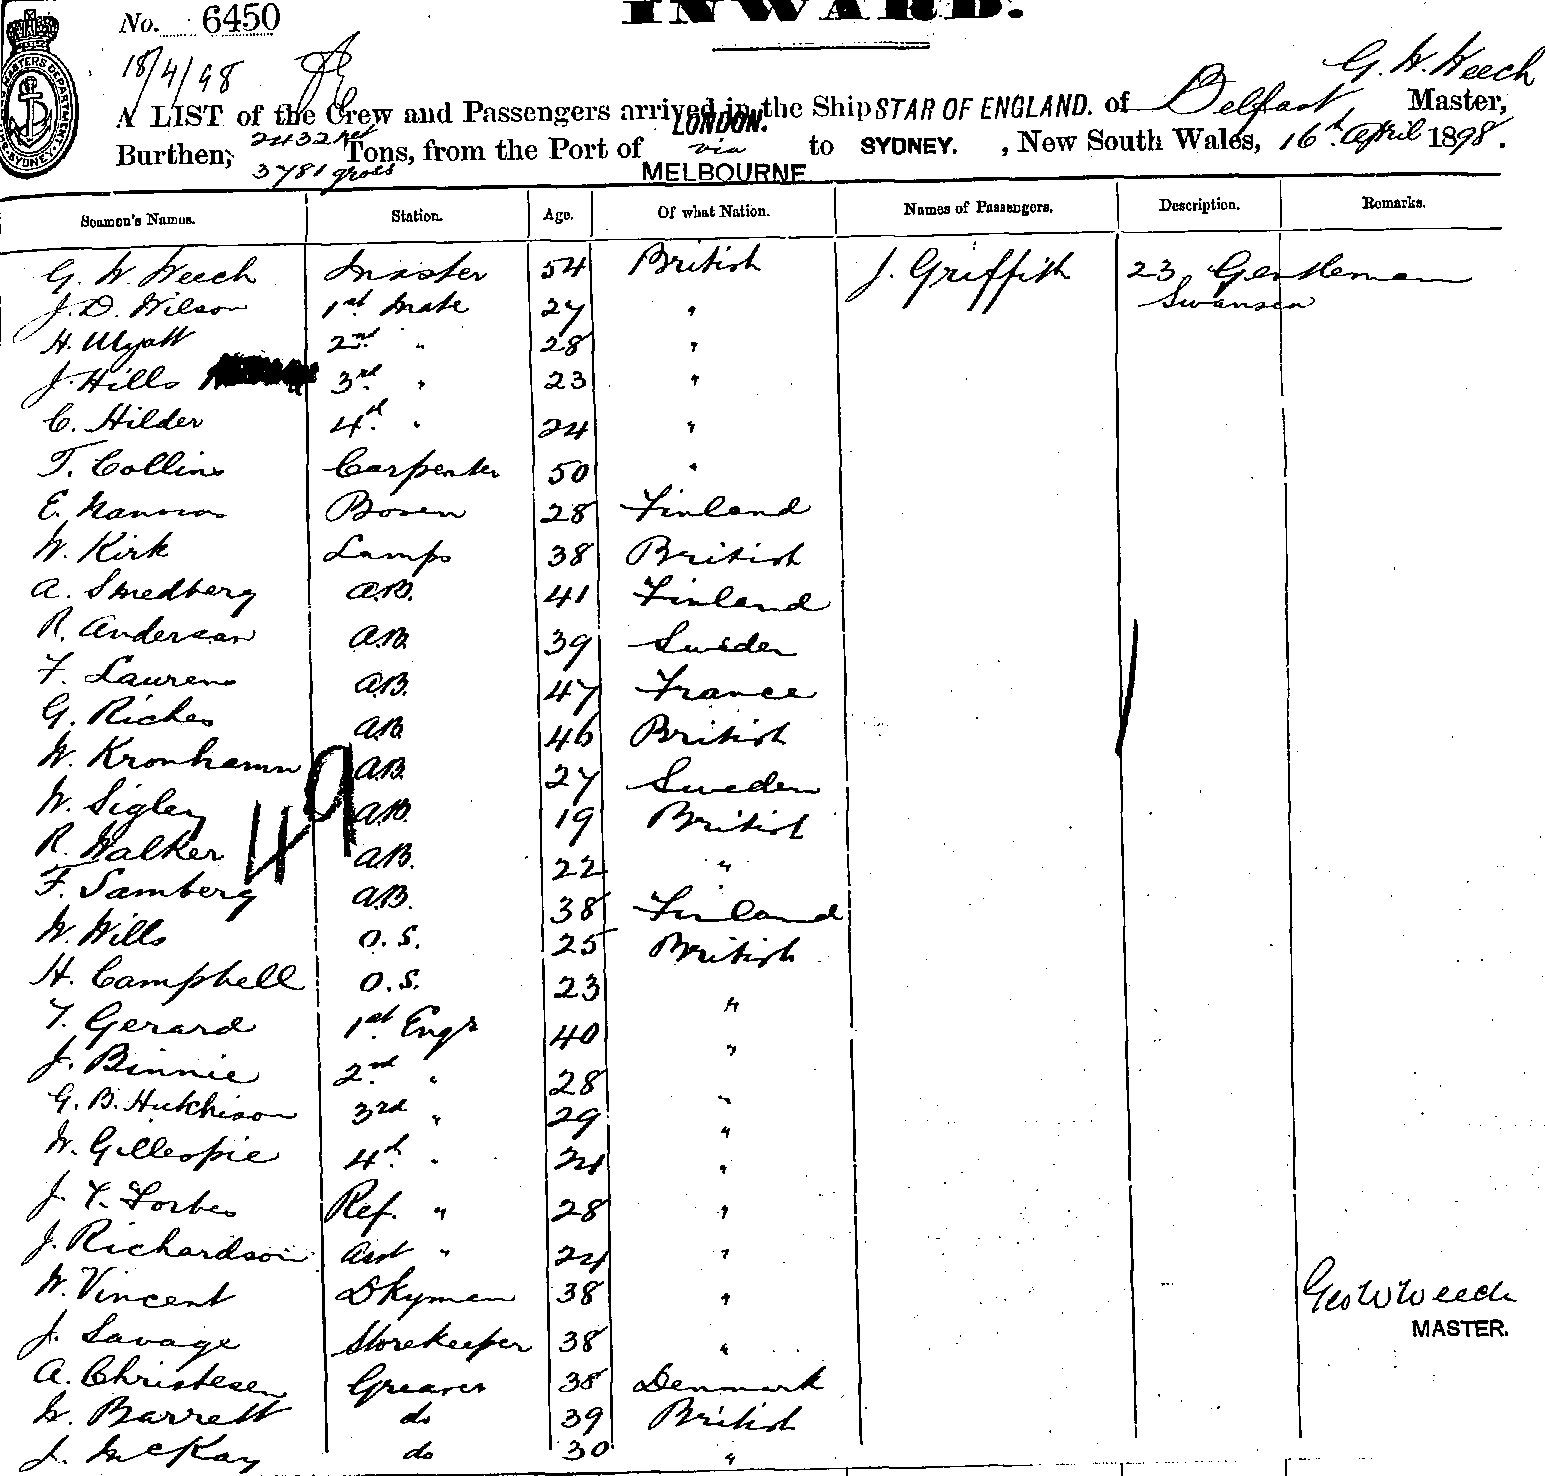 INWARD.
No. 6450
18/4/98
G. W. Weech
A LIST of the Crew and Passengers arrived in the Ship STAR OF ENGLAND. of Belfast, Master,
Burthen, 2432 net Tons, from the Port of LONDON. via to SYDNEY. , New South Wales, 16th April 1898.
3781 gross MELBOURNE
Seamen's Names. Station. Age. Of what Nation. Names of Passengers. Description. Remarks.
G. W. Weech Master 54 British J. Griffith 23 Gentleman
J. D. Wilson 1st Mate 27 " Swansea
H. Wyatt 2nd " 28 "
J. Hills 3rd " 23 "
C. Hilder 4th " 24 "
T. Collins Carpenter 50 "
E. 28 Finland
W. Kirk Lamps 38 British
A. Smedberg A.B. 41 Finland
R. Anderson A.B. 39 Sweden
F. Laurens A.B. 47 France
G. Riches A.B. 46 British
W. Kronhamn A.B. 27 Sweden
W. Sigley A.B. 19 British
49
R. Walker A.B. 22 "
F. Samberg A.B. 38 Finland
W. Wills O.S. 25 British
H. Campbell O.S. 23 "
T. Gerard 1st Engr 40 "
J. Binnie 2nd " 28 "
G. B. Hutchison 3rd " 29 "
W. Gillespie 4th " 24 "
J. T. Forbes Ref. " 28 "
J. Richardson Asst " 24 "
W. Vincent Dkyman 38 "
Geo W Weech
J. Savage Storekeeper 38 "
MASTER.
A. Christesen Greaser 38 Denmark
W. Barrett do 39 British
J. McKay do 30 "